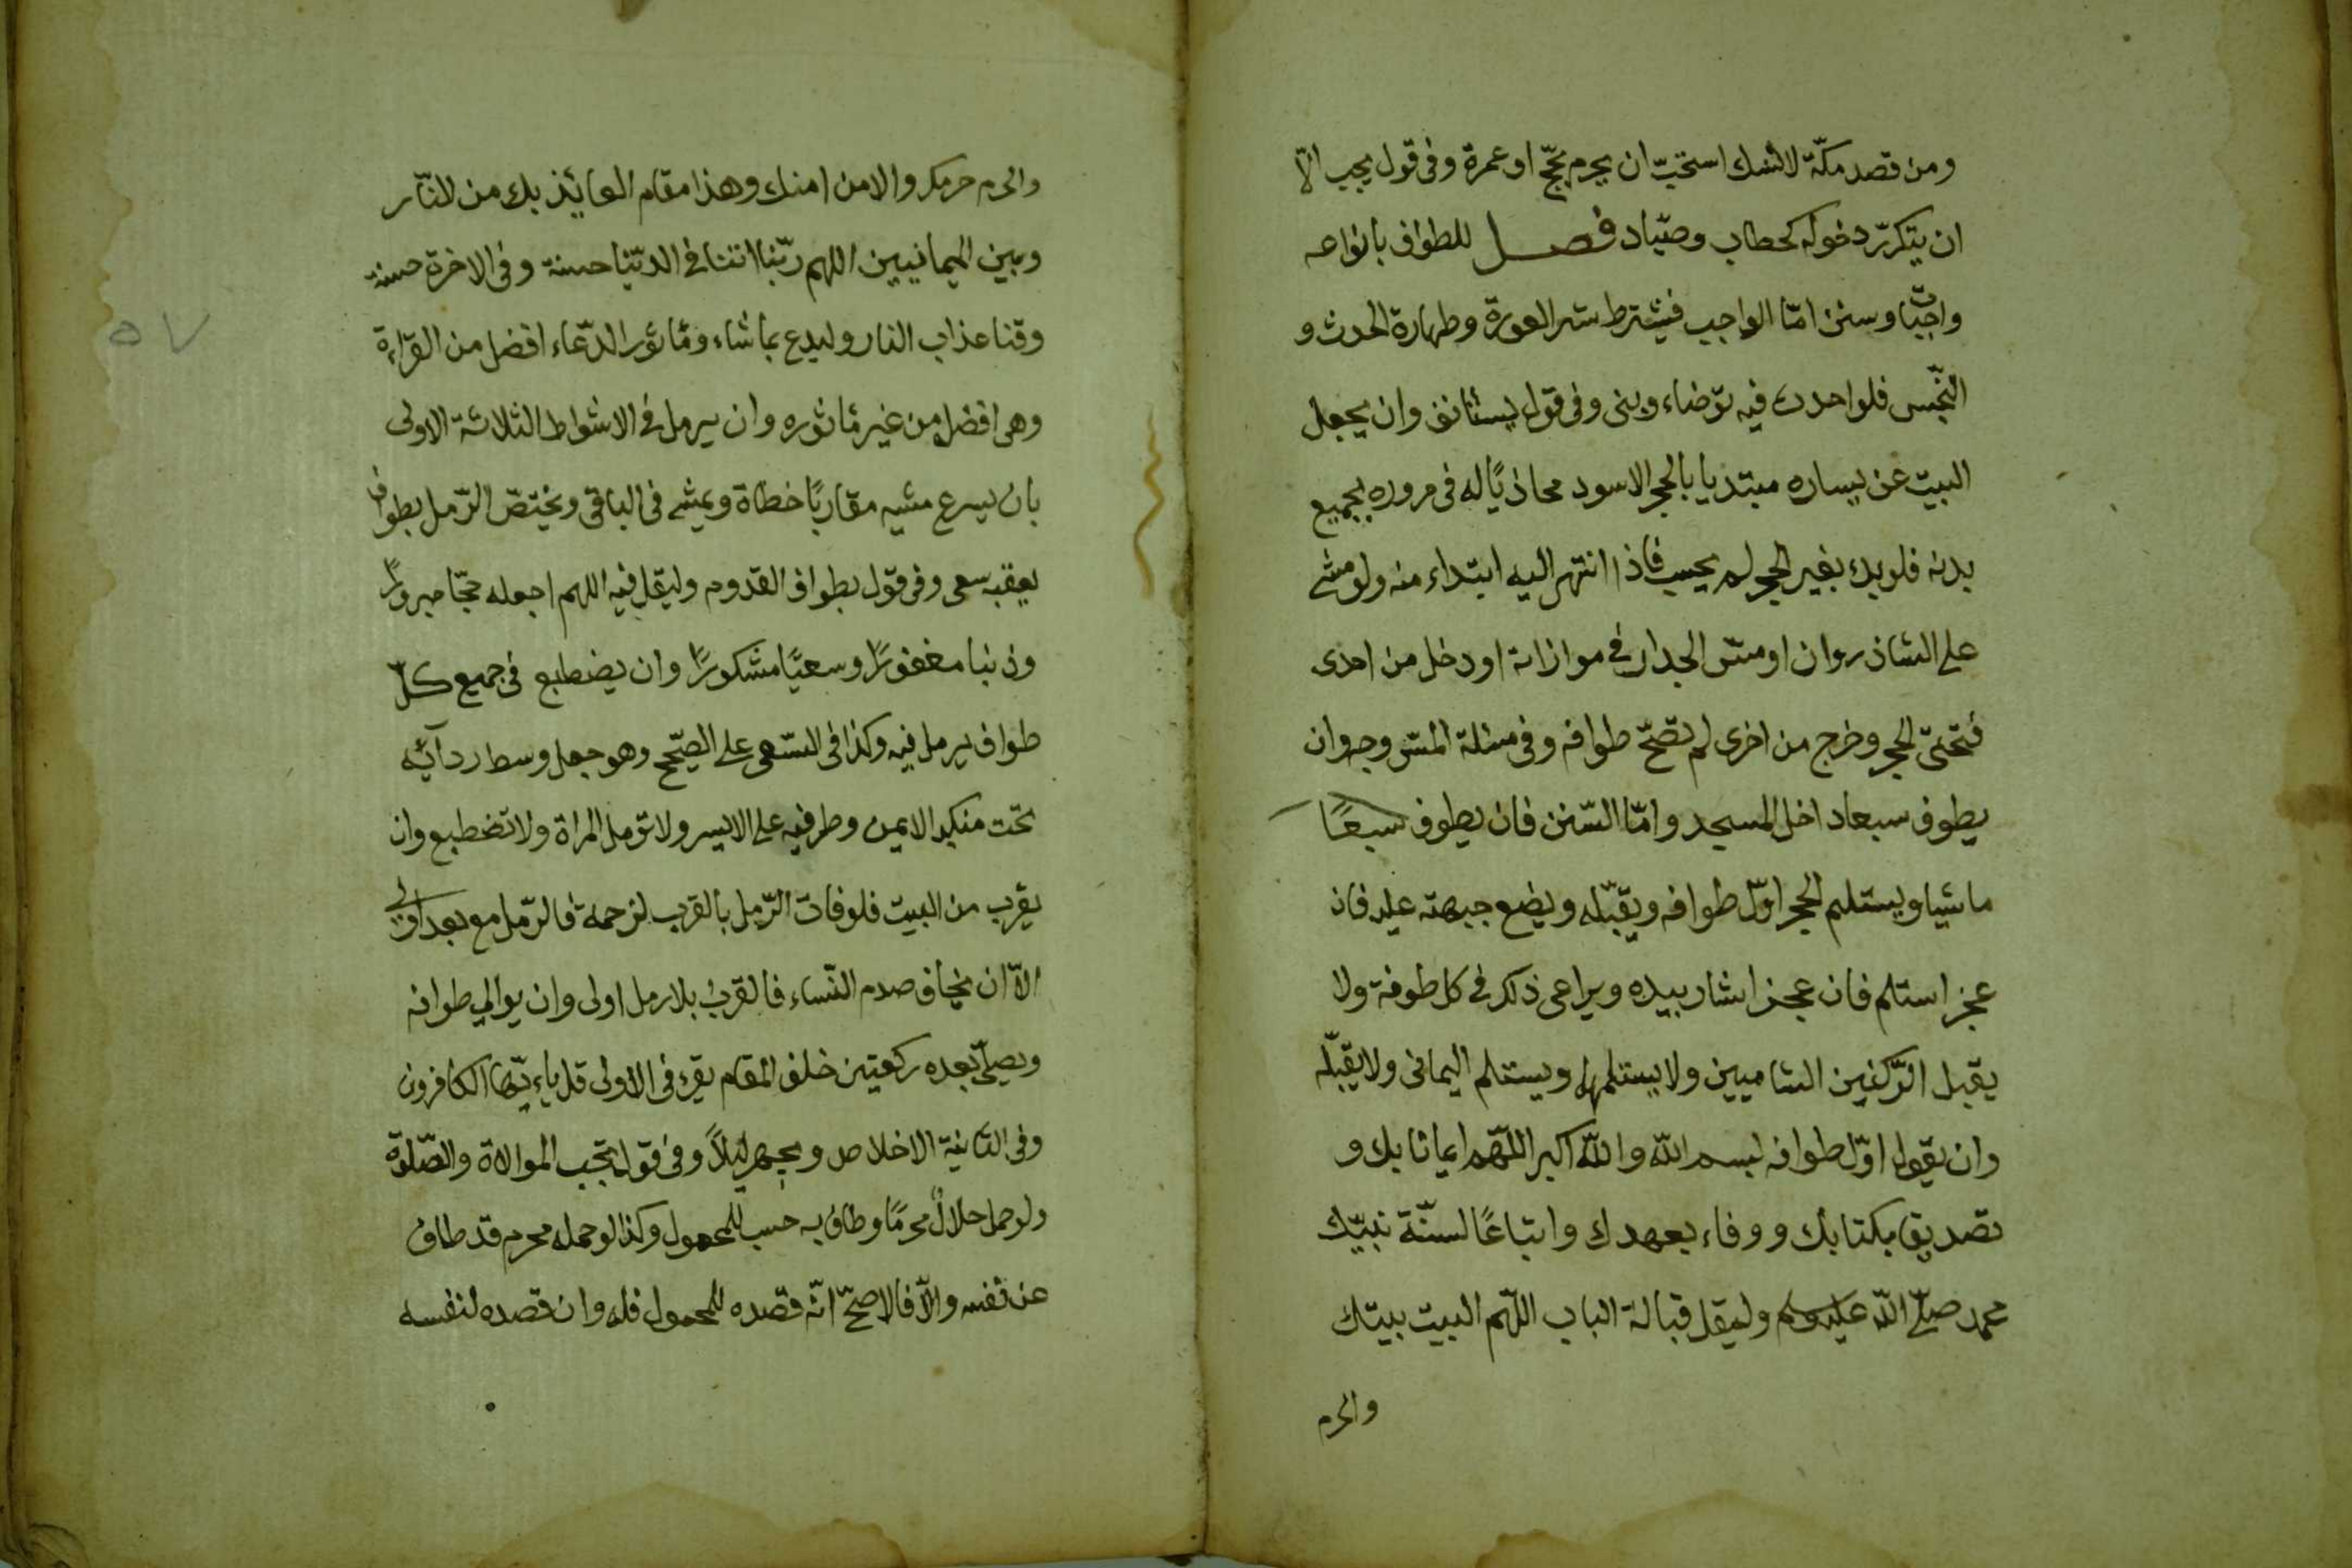 ومن قصد مكّة لا لنسك استحبّ ان يحرم بحجّ او عمرة وفى قول يجب الّا
ان يتكرّر دخوله كحطاب وصيّاد فصل للطواف بانواعه
واجبات وسنن امّا الواجب فيشترط ستر العورة وطهارة الحدث و
النّجس فلو احدث فيه توضاء وبنى وفى قول يستانف وان يجعل
البيت عن يساره مبتديا بالحجر الاسود محاذيًا له فى مروره بجميع
بدنه فلو بدء بغير الحجر لم يحسب فاذا انتهى اليه ابتداء منه ولو مشى
على الشاذروان او مسّ الجدار فى موازاته او دخل من احدى
فتحتىّ الحجر وخرج من اخرى لم تصّح طوافه وفى مسئلة المسّ وجه وان
يطوف سبعا داخل المسجد وامّا السّنن فان يطوف سبعًا
ماشيا ويستلم الحجر اوّل طوافه ويقبّله ويضع جبهته عليه فان
عجز استلم فان عجز اشار بيده ويراعى ذلك فى كل طوفة ولا
يقبل الرّكنين الشاميين ولا يستلمهما ويستلم اليمانى ولا يقبّله
وان يقول اوّل طوافه بسم اللّه واللّه اكبر اللّهم ايمانا بك و
تصديق بكتابك ووفاء بعهدك واتباعًا لسنّة نبيّك
محمد صلّى اللّه عليه وسلم وليقل قبالة الباب اللّهم البيت بيتك
والحرم
والحرم حرمك والامن امنك وهذا مقام العائذ بك من النّار
وبين اليمانيين اللهم ربّنا اتنا فى الدنّيا حسنة وفى الاخرة حسنة
وقنا عذاب النار وليدع بما شاء ومأثور الدّعاء افضل من القرّاءة
وهى افضل من غير مأثوره وان يرمل فى الاشواط الثلاثة الاولى
بان يسرع مشيه مقاربًا خطاة ويمشى فى الباقى ويختصّ الرّمل بطواف
يعقبه سعى وفى قول بطواف القدوم وليقل فيه اللهم اجعله حجّا مبرورًا
وذنبا مغفورًا وسعيًا مشكورًا وان يضطبع فى جميع كلّ
طواف يرمل فيه وكذا فى السّعى على الصّحيح وهو جعل وسط ردآئه
تحت منكبه الايمن وطرفيه على الايسر ولا ترمل المراة ولا تضطبع وان
يقرب من البيت فلو فات الرّمل بالقرب لزحمة فالرّمل مع بعد اولى
الاّ ان يخاف صدم النّساء فالقرب بلا رمل اولى وان يوالى طوافه
ويصلّى بعده ركعتين خلف المقام يقرء فى الاولى قل ياء يّها الكافرون
وفى الثانية الاخلاص ويجهر ليلاً وفى قول تجب الموالاة والصّلوة
ولو حمل حلالٌ محرمًا وطاف به حسب للمحمول وكذا لو حمله محرم قد طاف
عن نفسه والاّ فالاصحّ انّه قصده للمحمول فله وان قصده لنفسه
٥٧